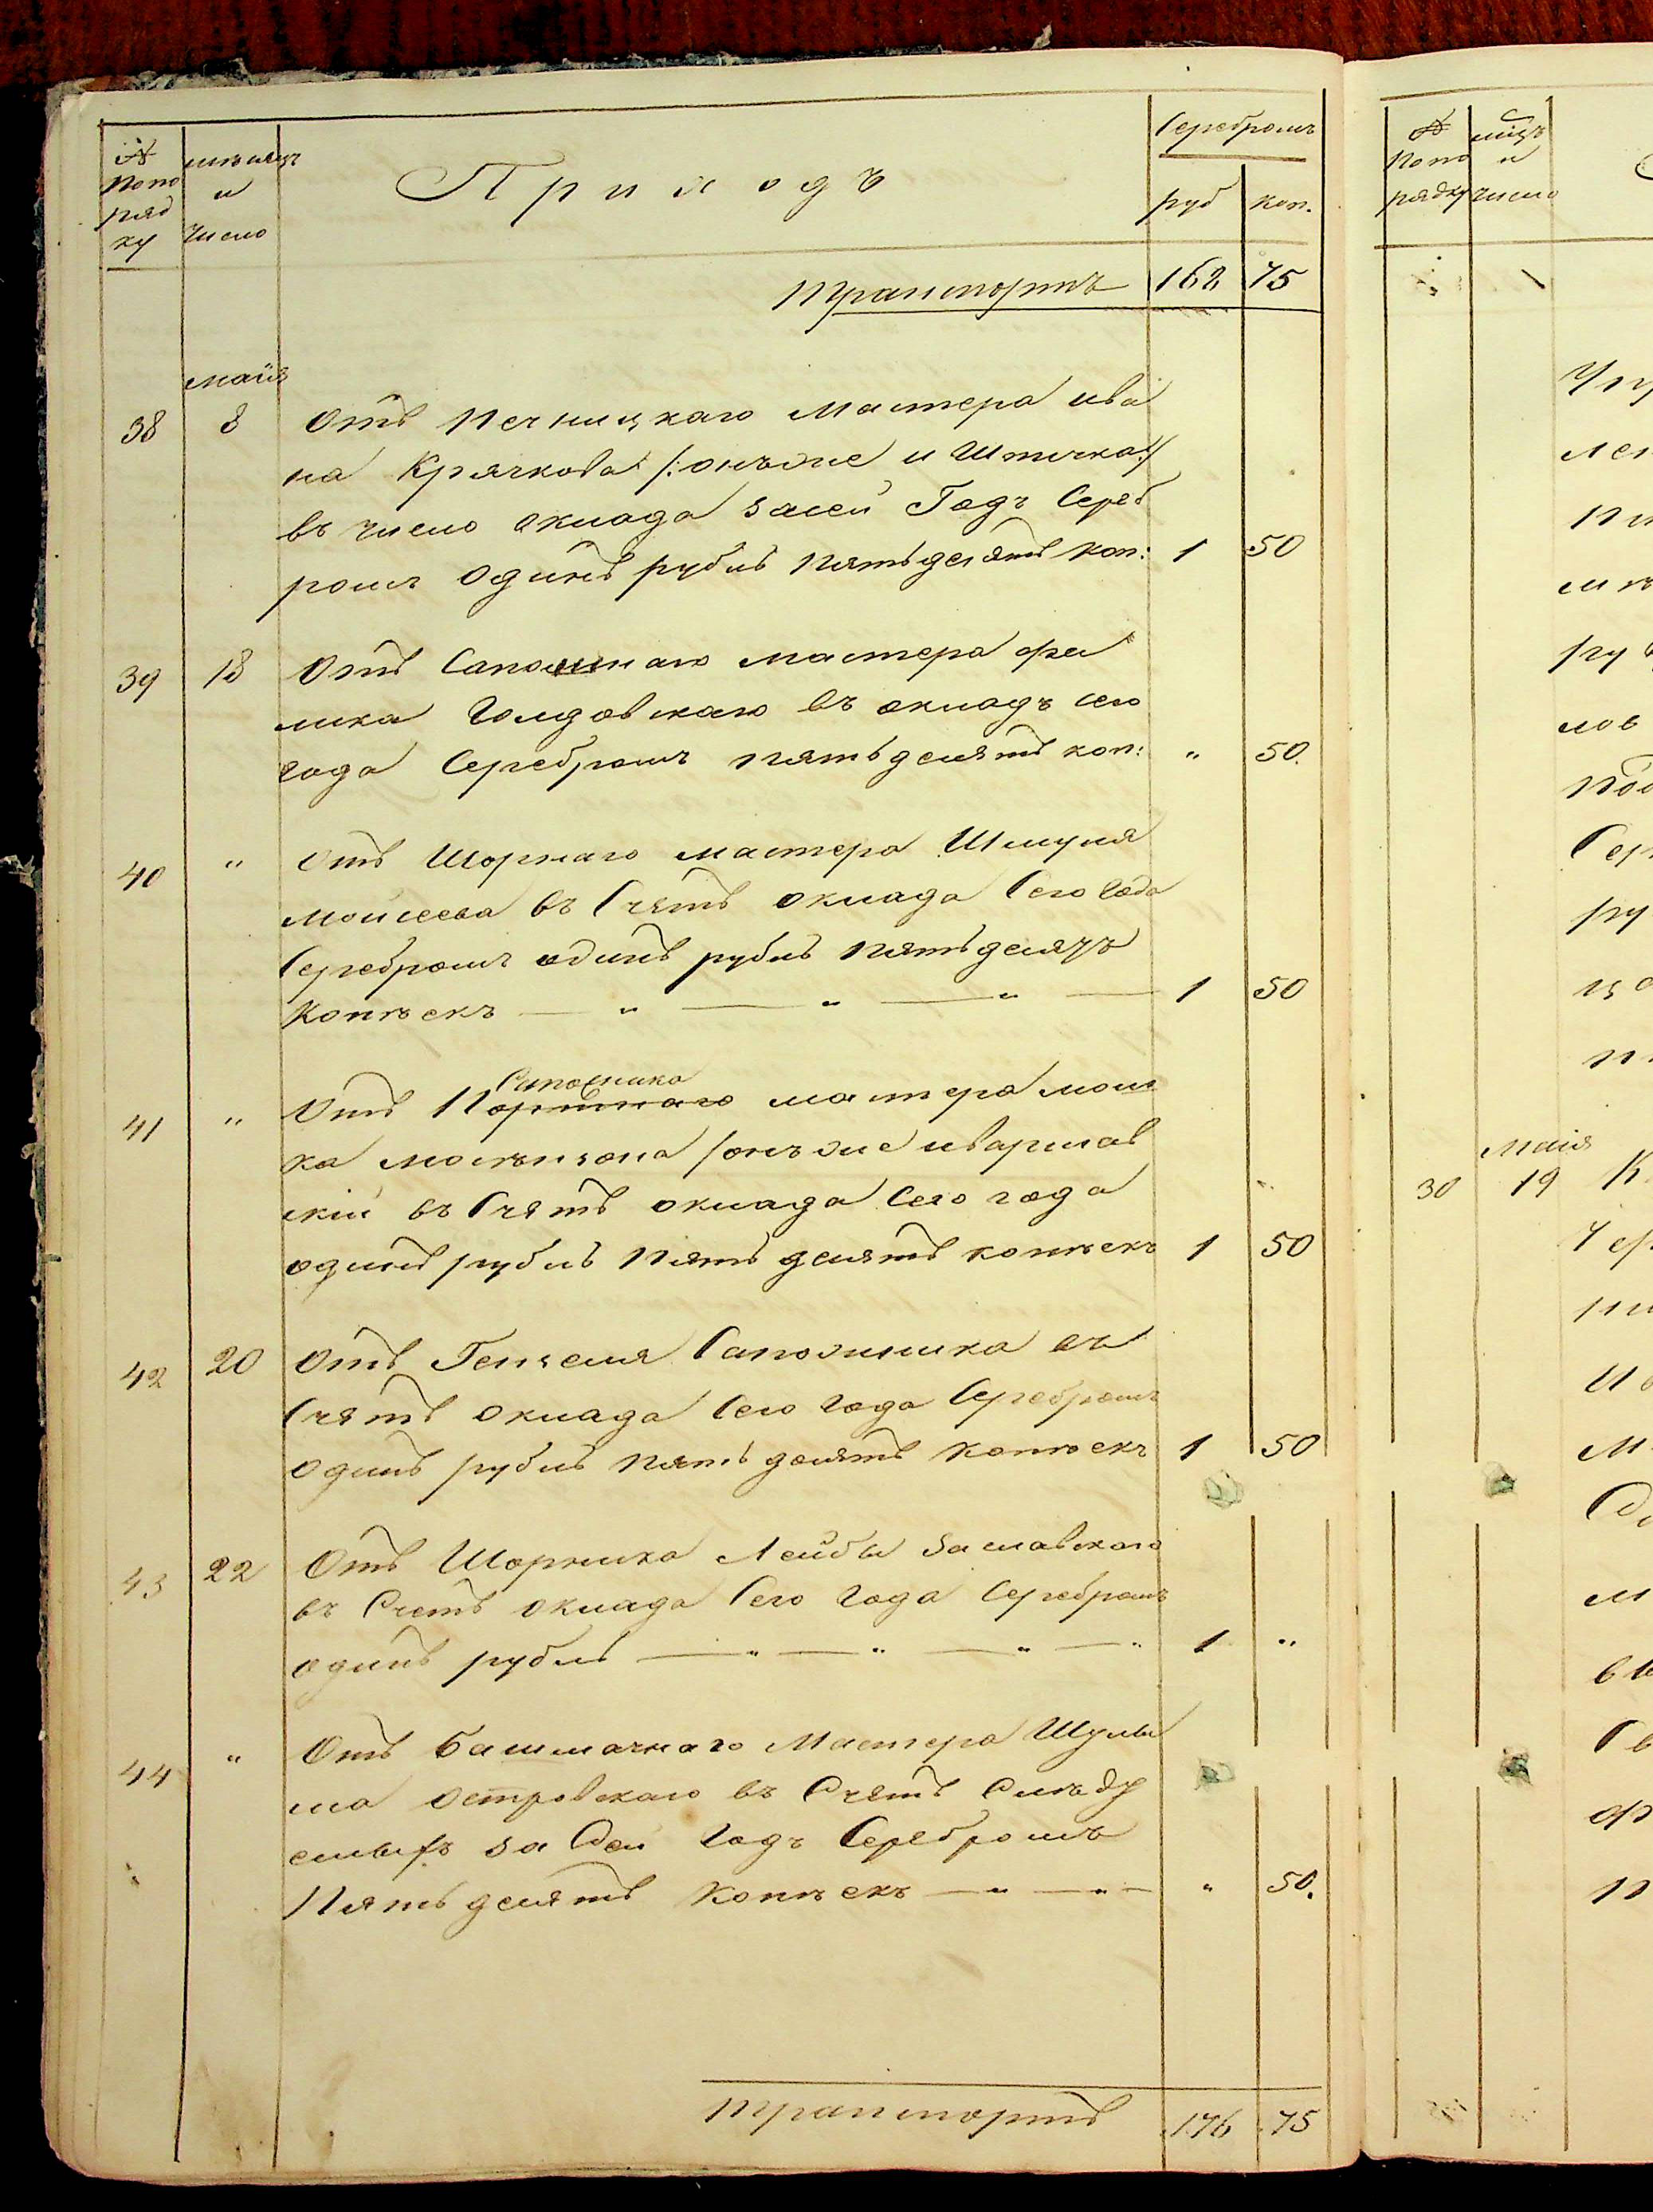 № по по ряд ку
мѣсяцъ и число
Приходъ
Серебромъ
руб коп.
транспортъ 162 75
маія
38 8 Отъ Печницкаго Мастера ива
на Крячкова /: онъже и Штичка :/
въ число оклада засей Годъ Сереб
ромъ Одинъ рубль пятьдесятъ коп: 1 50
39 18 Отъ Сапожнаго мастера фа
лика Голдовскаго въ окладъ сего
года Серебромъ пятьдесятъ коп: " 50.
40 " отъ Шорнаго мастера Шмуля
Моисеева въ Счетъ оклада Сего года
Серебромъ одинъ рубль пятьдесятъ
Копѣекъ — " — " — " — 1 50
Сапожника
41 " Отъ Портнаго мастера мош
ка /онъ же иваршав
скій въ Счятъ оклада Сего года
одинъ рубль пять десятъ копѣекъ 1 50
42 20 Отъ Генцеля Сапожника въ
Счятъ оклада Сего года Серебромъ
одинъ рубль пять десятъ копѣекъ 1 50
43 22 Отъ Шорника Лейбы Заславскаго
въ Счетъ оклада Сего Года Серебромъ
одинъ рубль — " — " — " — " 1 "
44 " Отъ Башмачнаго Мастера Шулы
ма Островскаго въ Счятъ Слѣду
емыхъ за Сей Годъ Серебромъ
Пять десятъ Копѣекъ — " — " — " 50.
транспортъ 176 75
№ по по рядку
мцъ и число
маія
30 19